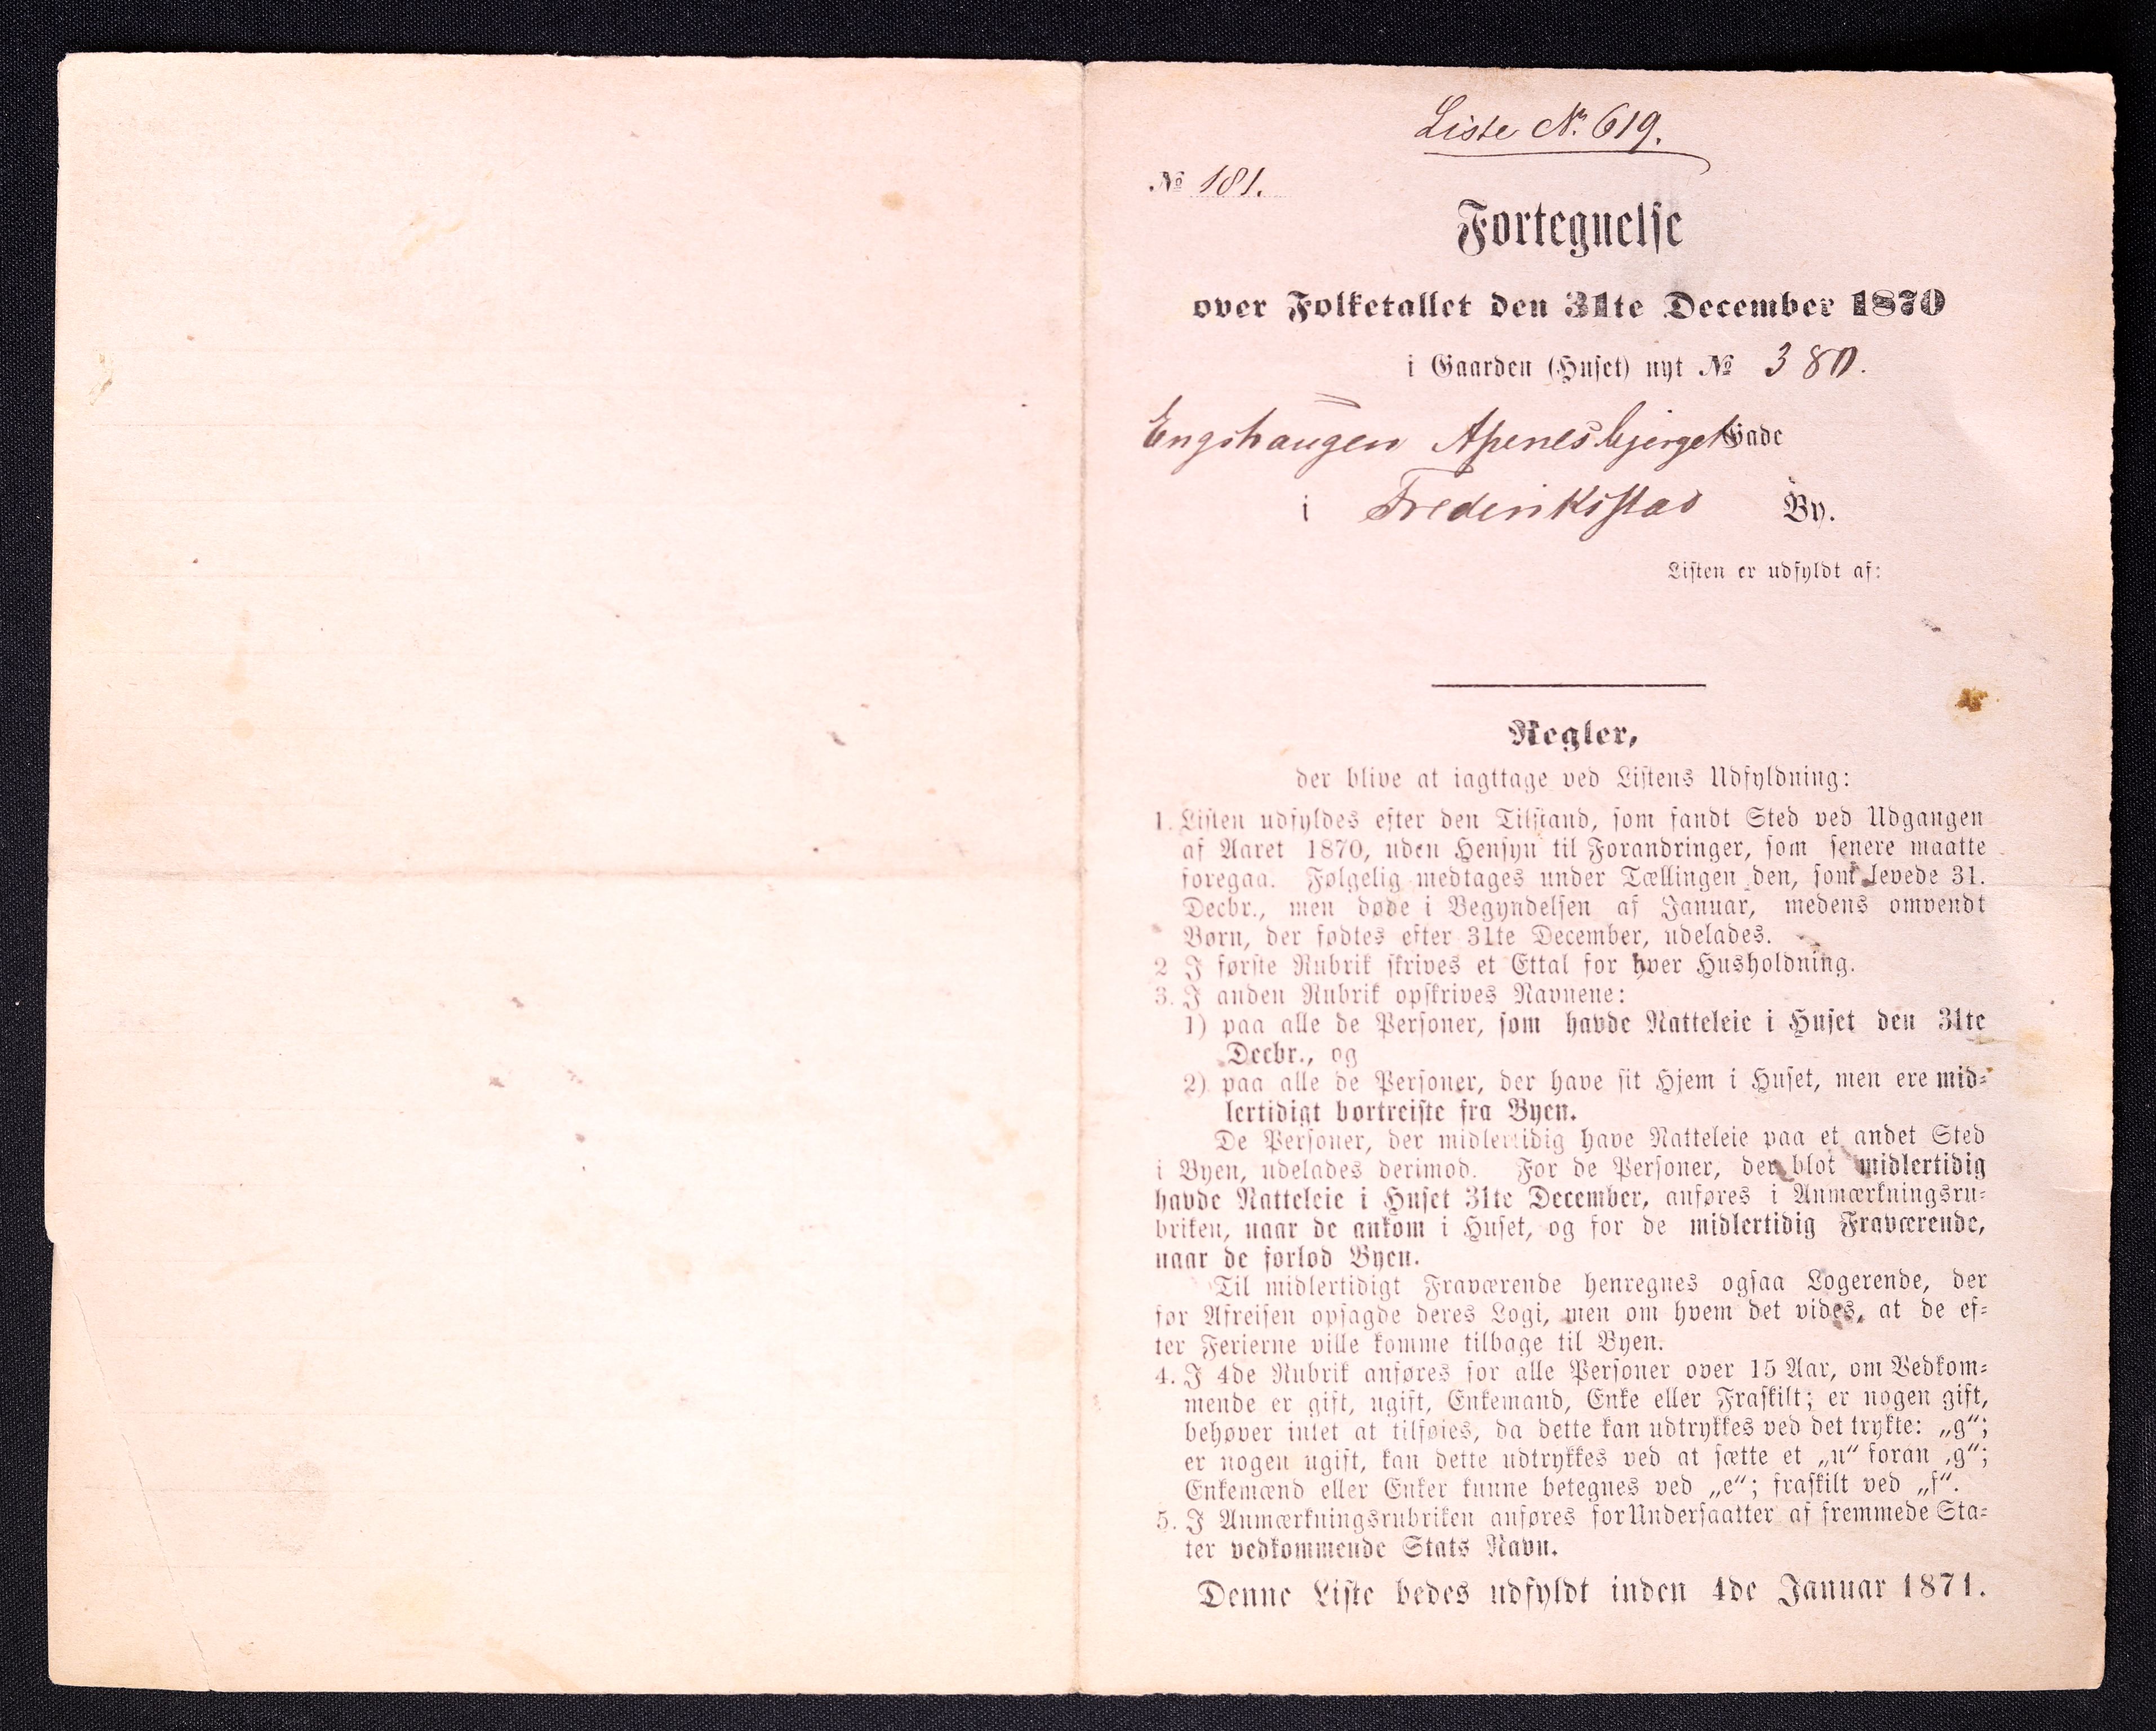 Liste No. 619.
No 181.
Fortegnelse
over Folketallet den 31te December 1870
i Gaarden (Huset) nyt No 380.
Engshaugen Apenesbjerget Gade
i Frederiksstad By.
Listen er udfyldt af:
Regler,
der blive at iagttage ved Listens Udfyldning:
1. Listen udfyldes efter den Tilstand, som fandt Sted ved Udgangen
af Aaret 1870, uden Hensyn til Forandringer, som senere maatte
foregaa. Følgelig medtages under Tællingen den, som levede 31.
Decbr., men døde i Begyndelsen af Januar, medens omvendt
Børn, der fødtes efter 31te December, udelades.
2 I første Rubrik skrives et Ettal for hver Husholdning.
3. I anden Rubrik opskrives Navnene:
1) paa alle de Personer, som havde Natteleie i Huset den 31te
Decbr., og
2) paa alle de Personer, der have sit Hjem i Huset, men ere mid-
lertidigt bortreiste fra Byen.
De Personer, der midlertidig have Natteleie paa et andet Sted
i Byen, udelades derimod. For de Personer, der blot midlertidig
havde Natteleie i Huset 31te December, anføres i Anmærkningsru-
briken, naar de ankom i Huset, og for de midlertidig Fraværende,
naar de forlod Byen.
Til midlertidigt Fraværende henregnes ogsaa Logerende, der
før Afreisen opsagde deres Logi, men om hvem det vides, at de ef-
ter Ferierne ville komme tilbage til Byen.
4. I 4de Rubrik anføres for alle Personer over 15 Aar, om Vedkom-
mende er gift, ugift, Enkemand, Enke eller Fraskilt; er nogen gift,
behøver intet at tilføies, da dette kan udtrykkes ved det trykte: „g“;
er nogen ugift, kan dette udtrykkes ved at sætte et „u“ foran „g“;
Enkemænd eller Enker kunne betegnes ved „e“; fraskilt ved „f“.
5. I Anmærkningsrubriken anføres for Undersaatter af fremmede Sta-
ter vedkommende Stats Navn.
Denne Liste bedes udfyldt inden 4de Januar 1871.